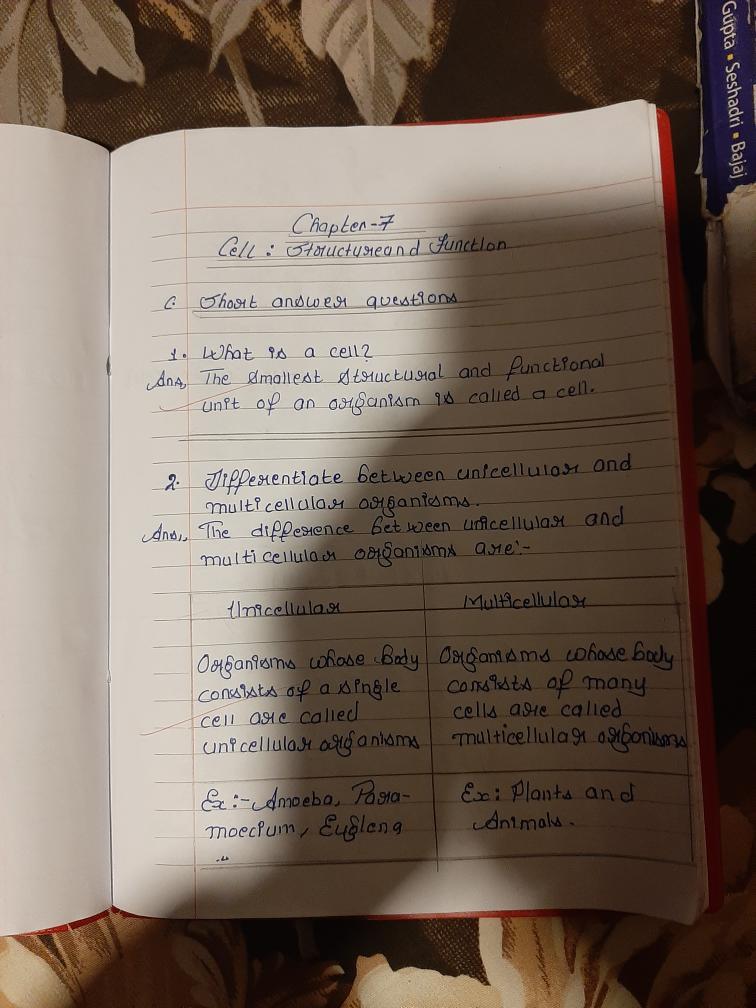 Gupta • Seshadri • Bajaj
Chapter-7
Cell : Structure and Function
C. Short answer questions
1. What is a cell?
Ans, The smallest structural and functional
unit of an organism is called a cell.
2. Differentiate between unicellular and
multicellular organisms.
Ans,, The difference between unicellular and
multicellular organisms are:-
Unicellular
Organisms whose body
consists of a single
cell are called
unicellular organisms
Ex:- Amoeba, Para-
moecium, Euglena
Multicellular
Organisms whose body
consists of many
cells are called
multicellular organisms
Ex: Plants and
Animals.